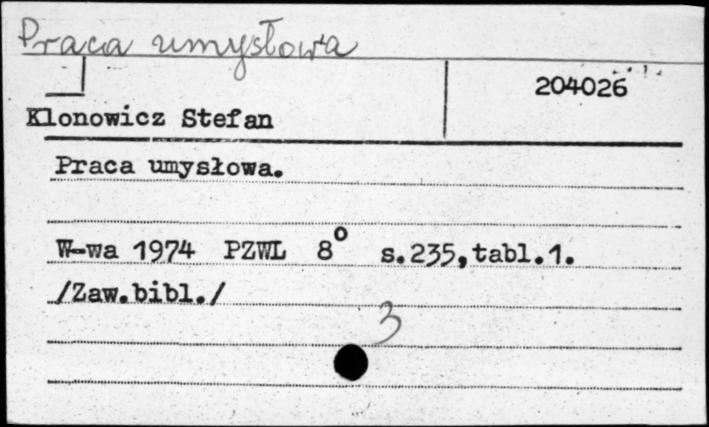 Praca umysłowa
204026
Klonowicz Stefan
Praca umysłowa.
W-wa 1974 PZWL 8° s.235,tabl.1.
/Zaw.bibl./
3